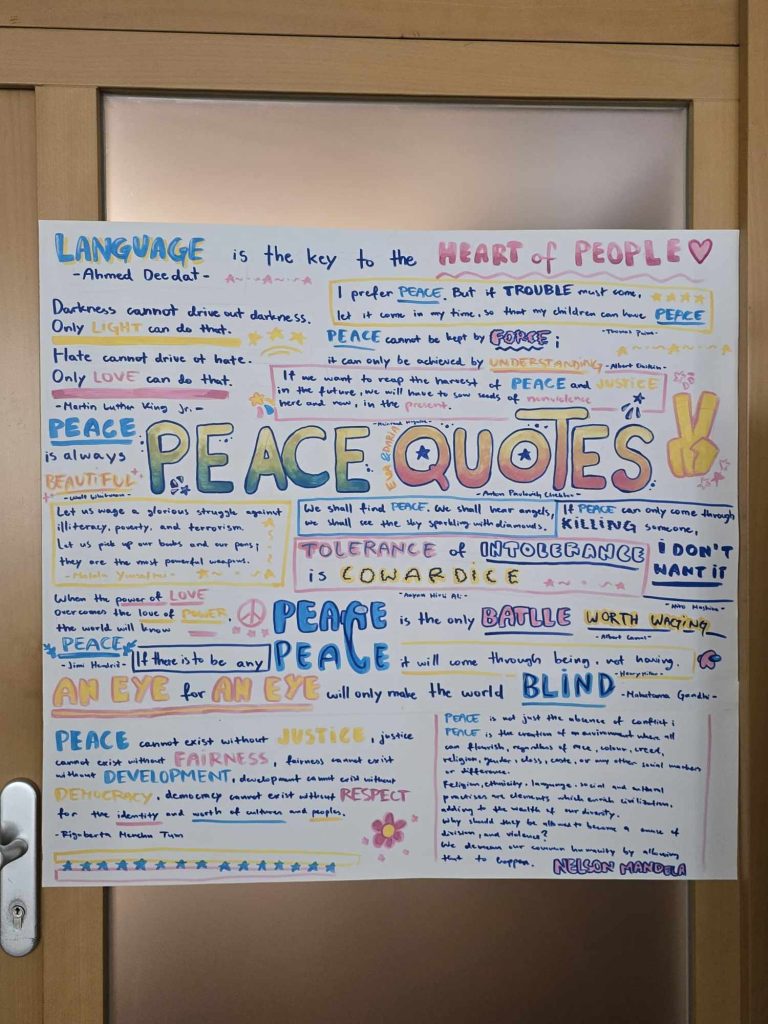 LANGUAGE is the key to the HEART of PEOPLE
- Ahmed Deedat -
Darkness cannot drive out darkness.
Only LIGHT can do that.
Hate cannot drive ot hate.
Only LOVE can do that.
- Martin Luther King Jr. -
I prefer PEACE. But if TROUBLE must come,
let it come in my time, so that my children can have PEACE
- Thomas Paine -
PEACE cannot be kept by FORCE;
it can only be achieved by UNDERSTANDING
- Albert Einstein
If we want to reap the harvest of PEACE and JUSTICE
in the future, we will have to sow seeds of nonviolence
here and now, in the present.
PEACE
is always
BEAUTIFUL
- Walt Whitman -
PEACE QUOTES
EVA & DARIA
- Anton Pavlovich Chekhov -
Let us wage a glorious struggle against
illiteracy, poverty, and terrorism.
Let us pick up our books and our pens;
they are the most powerful weapons.
- Malala Yousafzai -
We shall find PEACE. We shall hear angels,
we shall see the sky sparkling with diamonds.
If PEACE can only come through
KILLING someone,
i DON'T
WANT iT
TOLERANCE of INTOLERANCE
is COWARDICE
- Ayaan Hirsi Ali -
When the power of LOVE
overcomes the love of POWER,
the world will know
PEACE
- Jimi Hendrix -
PEACE is the only BATLLE WORTH WAGING
- Albert Camus -
If there is to be any PEACE it will come through being, not having.
- Henry Miller -
AN EYE for AN EYE will only make the world BLIND
- Mahatama Gandhi -
PEACE cannot exist without JUSTICE, justice
cannot exist without FAIRNESS, fairness cannot exist
without DEVELOPMENT, development cannot exist without
DEMOCRACY, democracy cannot exist without RESPECT
for the identity and worth of cultures and peoples.
- Rigoberta Menchu Tum
PEACE is not just the absence of conflict;
PEACE is the creation of an environment where all
can flourish, regardless of race, colour, creed,
religion, gender, class, caste, or any other social markers
or difference.
Religion, ethnicity, language, social and cultural
practises are elements which enrich civilization,
adding to the wealth of our diversity.
Why should they be allowed to become a cause of
division, and violence?
We demean our common humanity by allowing
that to happen.
NELSON MANDELA